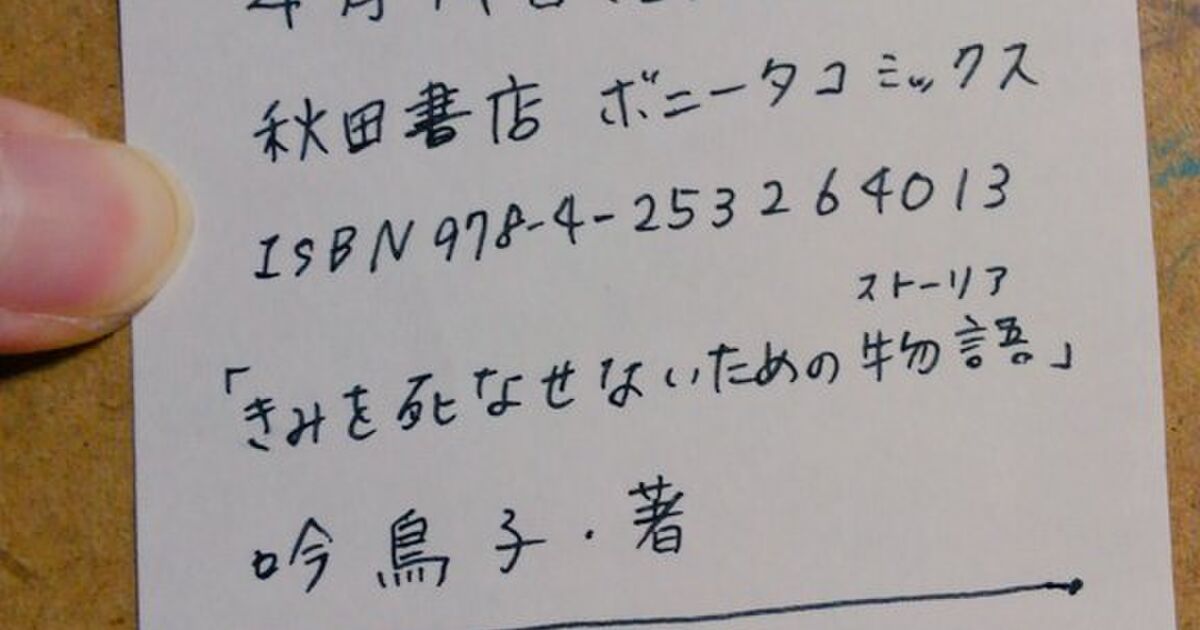 秋田書店 ボニータコミックス
ISBN978-4-253264013
ストーリア
「きみを死なせないための物語」
吟鳥子・著